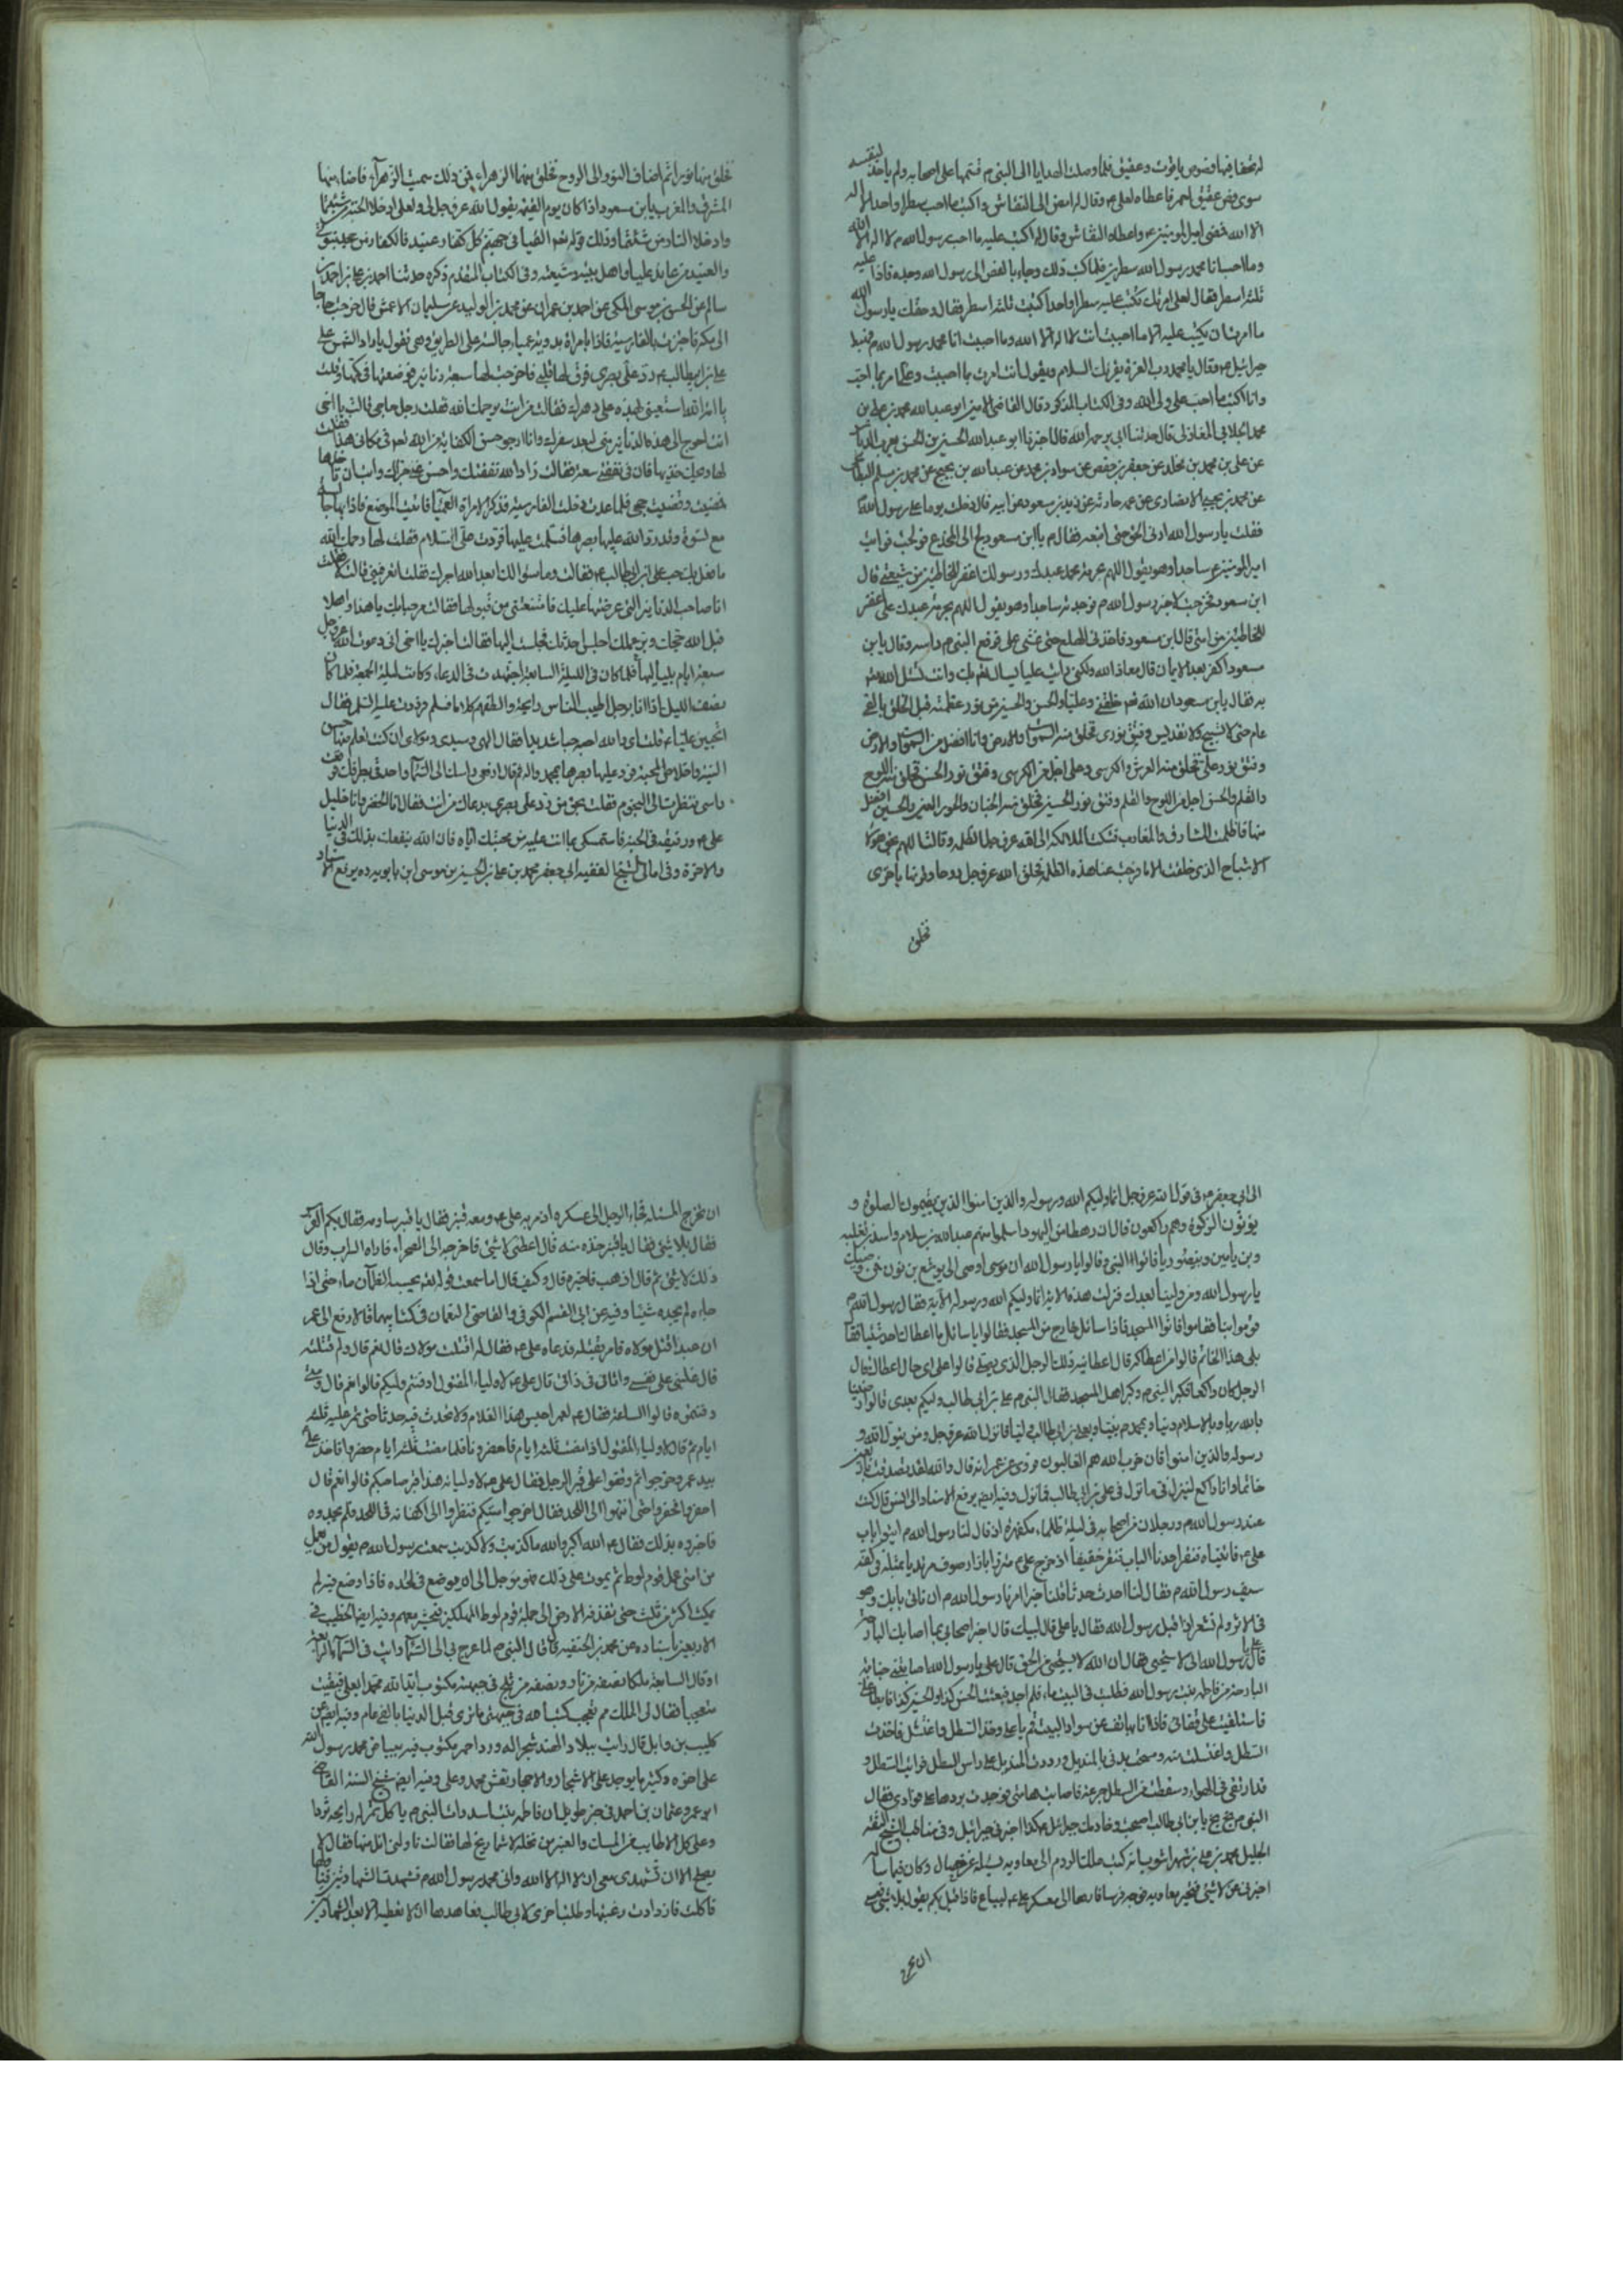 له تحفا فيها فصوص ياقوت وعقيق فلما وصلت الهدايا الى النبي م قسمها على اصحابه ولم ياخذ لنفسه
سوى فص عقيق احمر فاعطاه لعلى م وقال له امض الى النقاش واكتب ما احب سطرا واحدا لا اله
الا الله فمضى امير المومنين ع واعطاه النقاش وقال له اكتب عليه ما احب رسول الله م لا اله الا الله
وما احب انا محمد رسول الله سطرين فلما كتب ذلك وجاء بالفص الى رسول الله وجده فاذا عليه
ثلثة اسطر فقال لعلى امرتك تكتب عليه سطرا واحدا كتبت ثلثة اسطر فقال وحقك يا رسول الله
ما امرت ان يكتب عليه الا ما احببت انت لا اله الا الله وما احببت انا محمد رسول الله م فهبط
جبرائيل م وقال يا محمد رب العزة يقريك السلام ويقول انت امرت بما احببت وعلى امر بما احب
وانا اكتب ما احب على ولى الله وفى الكتاب المذكور قال القاضى الامين ابو عبد الله محمد بن على بن
محمد الجلابى المغازلى قال حدثنا ابى رحمه الله قال اخبرنا ابو عبد الله الحسين بن الحسن
عن على بن محمد بن مخلد عن جعفر بن حفص عن سواد بن محمد عن عبد الله بن نجيح عن محمد بن مسلم
عن محمد بن يحيى الانصارى عن عمه حارثة عن زيد بن مسعود عن ابيه قال دخلت يوما على رسول الله م
فقلت يا رسول الله ارنى الحق حتى اتبعه فقال م يا ابن مسعود لج الى المخدع فولجت فرايت
امير المومنين ع ساجدا وهو يقول اللهم بحرمة محمد عبدك ورسولك اغفر للخاطئين من شيعتى قال
ابن مسعود فخرجت لاخبر رسول الله م فوجدته ساجدا وهو يقول اللهم بحرمة عبدك على اغفر
للخاطئين من امتى قال ابن مسعود فاخذنى الهلع حتى غشى على فرفع النبى م راسه وقال يا بن
مسعود اكفر بعد الايمان قال معاذ الله ولكنى رايت عليا يسال الله بك وانت تسئل الله
به فقال يا بن مسعود ان الله تعم خلقنى وعليا والحسن والحسين من نور عظمته قبل الخلق بالفى
عام حين لا تسبيح ولا تقديس وفتق نورى فخلق منه السموات والارض وانا افضل من السموات والارض
وفتق نور على فخلق منه العرش والكرسى وعلى اجل من الكرسى وفتق نور الحسن فخلق منه اللوح
والقلم والحسن اجل من اللوح والقلم وفتق نور الحسين فخلق منه الجنان والحور العين والحسين افضل
منها فاظلمت المشارق والمغارب فشكت الملائكة الى الله عز وجل الظلمة وقالت اللهم بحق هولاء
الاشباح الذى خلقت الا ما فرجت عنا هذه الظلمة فخلق الله عز وجل روحا وقرنها باخرى
فخلق
فخلق منها نورا ثم اضاف النور الى الروح فخلق منها الزهراء فمن ذلك سميت الزهراء فاضاء منها
المشرق والمغرب يا بن مسعود اذا كان يوم القيمة يقول الله عز وجل لى ولعلى ادخلا الجنة من شئتما
وادخلا النار من شئتما وذلك قوله تعم القيا فى جهنم كل كفار عنيد فالكفار من جحد نبوتى
والعنيد من عاند عليا واهل بيته وشيعته وفى الكتاب المقدم ذكره حدثنا احمد بن على بن احمد بن
سالم عن الحسن بن موسى المكى عن احمد بن عمران عن محمد بن الوليد عن سليمان الاعمش قال خرجت حاجا
الى مكة فاجتزت بالقادسية فاذا بامراة بدوية عمياء جالسة على الطريق وهى تقول يا راد الشمس على
على بن ابيطالب م رد على بصرى فرق لها قلبى فاخرجت لها سبعة دنانير فوضعتها فى كمها وقلت
يا امة الله استعينى بهذه على دهرك فقالت من انت يرحمك الله فقلت رجل حاجى قالت يا اخى
انت احوج الى هذه الدنانير منى لبعد سفرك وانا ارجو حسن الكفاية من الله لعم فى مكانى هذا فقلت
مضيت وقضيت حجى فلما عدت دخلت القادسية فذكرت الامراة العمياء فاتيت الموضع فاذا بها
مع نسوة وقد رد الله عليها بصرها فسلمت عليها فردت على السلام فقلت لها رحمك الله
ما فعل بك حب على ابن ابى طالب م فقالت وما سوالك يا عبد الله اجرك فقلت اتعرفينى قالت لا فقلت
انا صاحب الدنانير التى عرضتها عليك فامتنعتى من قبولها فقالت مرحبا بك يا هذا واهلا
قبل الله حجك وبر عملك اجلس احدثك فجلست اليها فقالت اخبرك يا اخى انى دعوت الله عز وجل
سبعة ايام بلياليها فلما كان فى الليلة السابعة اجتهدت فى الدعاء وكانت ليلة الجمعة فلما كان
نصف الليل اذا انا برجل اطيب الناس رائحة والطفهم كلاما فسلم فرددت عليه السلم فقال
اتحبين عليا م قلت اى والله احبه حبا شديدا فقال الهى وسيدى ومولاى ان كنت تعلم منها حسن
النية واخلاص المحبة فرد عليها بصرها بمحمد واله ثم قال ارفعى راسك الى السماء واحدقى بطرفك فرفعت
راسى فنظرت الى النجوم فقلت بحق من رد على بصرى بدعائك من انت فقال انا الخضر وانا خليل
على م ورفيقه فى الجنة فاستمسكى بما انت عليه من محبتك اياه فان الله ينفعك بذلك فى الدنيا
والاخرة وفى امالى الشيخ الفقيه ابى جعفر محمد بن على بن الحسين بن موسى ابن بابويه ره يرفع الاسناد
الى ابى جعفر م فى قول الله عز وجل انما وليكم الله ورسوله والذين امنوا الذين يقيمون الصلوة و
يؤتون الزكوة وهم راكعون قال ان رهطا من اليهود اسلموا منهم عبد الله بن سلام واسد بن ثعلبة
وبن يامين وبن صوريا فاتوا النبى وقالوا يا رسول الله ان موسى اوصى الى يوشع بن نون فمن وصيك
يا رسول الله ومن ولينا بعدك فنزلت هذه الاية انما وليكم الله ورسوله الاية فقال رسول الله م
قوموا بنا فقاموا فاتوا المسجد فاذا سائل خارج من المسجد فقالوا يا سائل ما اعطاك احد شيئا فقال
بلى هذا الخاتم قالوا من اعطاكه قال اعطانيه ذلك الرجل الذى يصلى قالوا على اى حال اعطاك قال
الرجل كان راكعا فكبر النبى م وكبر اهل المسجد فقال النبى م على بن ابى طالب وليكم بعدى قالوا رضينا
بالله ربا وبالاسلام دينا وبمحمد م نبيا وبعلى بن ابى طالب وليا فانزل الله عز وجل ومن يتول الله و
رسوله والذين امنوا فان حزب الله هم الغالبون وروى عن عمر انه قال والله لقد تصدقت باربعين
خاتما وانا راكع لينزل فى ما نزل فى على بن ابى طالب فما نزل وفيه ايضا يرفع الاسناد الى انس قال كنت
عند رسول الله م ورجلان من اصحابه فى ليلة ظلماء مكفهرة اذ قال لنا رسول الله م ايتوا باب
على م فاتيناه فنقر احدنا الباب نقرا خفيفا اذ خرج على م متزرا بازار صوف مرتديا بمثله فى كفه
سيف رسول الله م فقال لنا احدث حدث قلنا خير امرنا رسول الله م ان ناتى بابك وهو
فى الاثر ولم نشعر اذا اقبل رسول الله فقال يا على قال لبيك قال اخبر اصحابى بما اصابك البارحة
قال على يا رسول الله انى لاستحيى فقال ان الله لا يستحيى من الحق قال على يا رسول الله اصابتنى جنابة
البارحة من فاطمة بنت رسول الله فطلبت فى البيت ماء فلم اجد فبعثت الحسن كذا والحسين كذا فابطا على
فاستلقيت على قفائى فاذا انا بهاتف من سواد البيت قم يا على وخذ السطل واغتسل فاخذت
السطل واغتسلت منه ومسحت بدنى بالمنديل ورددت المنديل على راس السطل فرايت السطل و
قد ارتفع فى الهواء وسقطت من السطل جرعة فاصابت هامتى فوجدت بردها على فوادى فقال
النبى م بخ بخ يا بن ابى طالب اصبحت وخادمك جبرائيل هكذا اخبرنى جبرائيل وفى مناقب الشيخ الفقيه
الجليل محمد بن على بن شهراشوب انه كتب ملك الروم الى معاوية يسئله عن خصال وكان فيما ساله
اخبرنى عن لا شئ فتحير معاوية فوجه فرسا فارها الى معسكر على م ليباع فاذا قيل بكم يقول بلا شئ فعسى
ان يخرج
ان يخرج المسئلة فجاء الرجل الى عسكره اذ مر به على م ومعه قنبر فقال يا قنبر ساومه فقال بكم الفرس
فقال بلا شئ فقال يا قنبر خذه منه قال اعطنى لا شئ فاخرجه الى الصحراء فاراه السراب وقال
ذلك لا شئ ثم قال اذهب فاخبره قال وكيف قال اما سمعت قول الله يحسبه الظمآن ماء حتى اذا
جاءه لم يجده شيئا وفيه عن ابى القسم الكوفى والقاضى النعمان فى كتابيهما قالا رفع الى عمر
ان عبدا قتل مولاه فامر بقتله فدعاه على م فقال له اقتلت مولاك قال نعم قال ولم قتلته
قال غلبنى على نفسى واتانى فى ذاتى قال على م لاولياء المقتول ادفنتم وليكم قالوا نعم قال ومتى
دفنتموه قالوا الساعة فقال م لعمر احبس هذا الغلام ولا تحدث فيه حدثا حتى تمر عليه ثلثة
ايام ثم قال لاولياء المقتول اذا مضت ثلثة ايام فاحضرونا فلما مضت ثلثة ايام حضروا فاخذ على
بيد عمر وخرجوا ثم وقفوا على قبر الرجل فقال على م لاوليائه هذا قبر صاحبكم قالوا نعم قال
احفروا فحفروا حتى انتهوا الى اللحد فقال اخرجوا ميتكم فنظروا الى اكفانه فى اللحد ولم يجدوه
فاخبروه بذلك فقال م الله اكبر والله ما كذبت ولا كذبت سمعت رسول الله م يقول من يعمل
من امتى عمل قوم لوط ثم يموت على ذلك فهو موجل الى ان يوضع فى لحده فاذا وضع فيه لم
يمكث اكثر من ثلث حتى تقذفه الارض الى جملة قوم لوط المهلكين فيحشر معهم وفيه ايضا الخطيب فى
الاربعين باسناده عن محمد بن الحنفية قال قال النبى م لما عرج بى الى السماء رايت فى السماء الرابعة
او قال السابعة ملكا نصفه من نار ونصفه من ثلج فى جبهته مكتوب ايد الله محمدا بعلى فبقيت
متعجبا فقال لى الملك مم تعجب كتب الله فى جبهتى ما ترى قبل الدنيا بالفى عام وفيه ايضا عن
كليب بن وايل قال رايت ببلاد الهند شجرا له ورد احمر مكتوب فيه ببياض محمد رسول الله
على اخوه وكثيرا يوجد على الاشجار والاحجار نقش محمد وعلى وفيه ايضا شيخ السنة القاضى
ابو عمرو عثمان بن احمد فى خبر طويل ان فاطمة بنت اسد رات النبى م ياكل تمرا له رايحة تزداد
وعلى كل الاطايب من المسك والعنبر من نخلة لا شماريخ لها فقالت ناولنى انل منها فقال لا
يصلح الا ان تشهدى معى ان لا اله الا الله وانى محمد رسول الله م فشهدت الشهادتين فناولها
فاكلت فازدادت رغبتها وطلبت اخرى لابى طالب فعاهدها ان لا تعطيه الا بعد الشهادتين